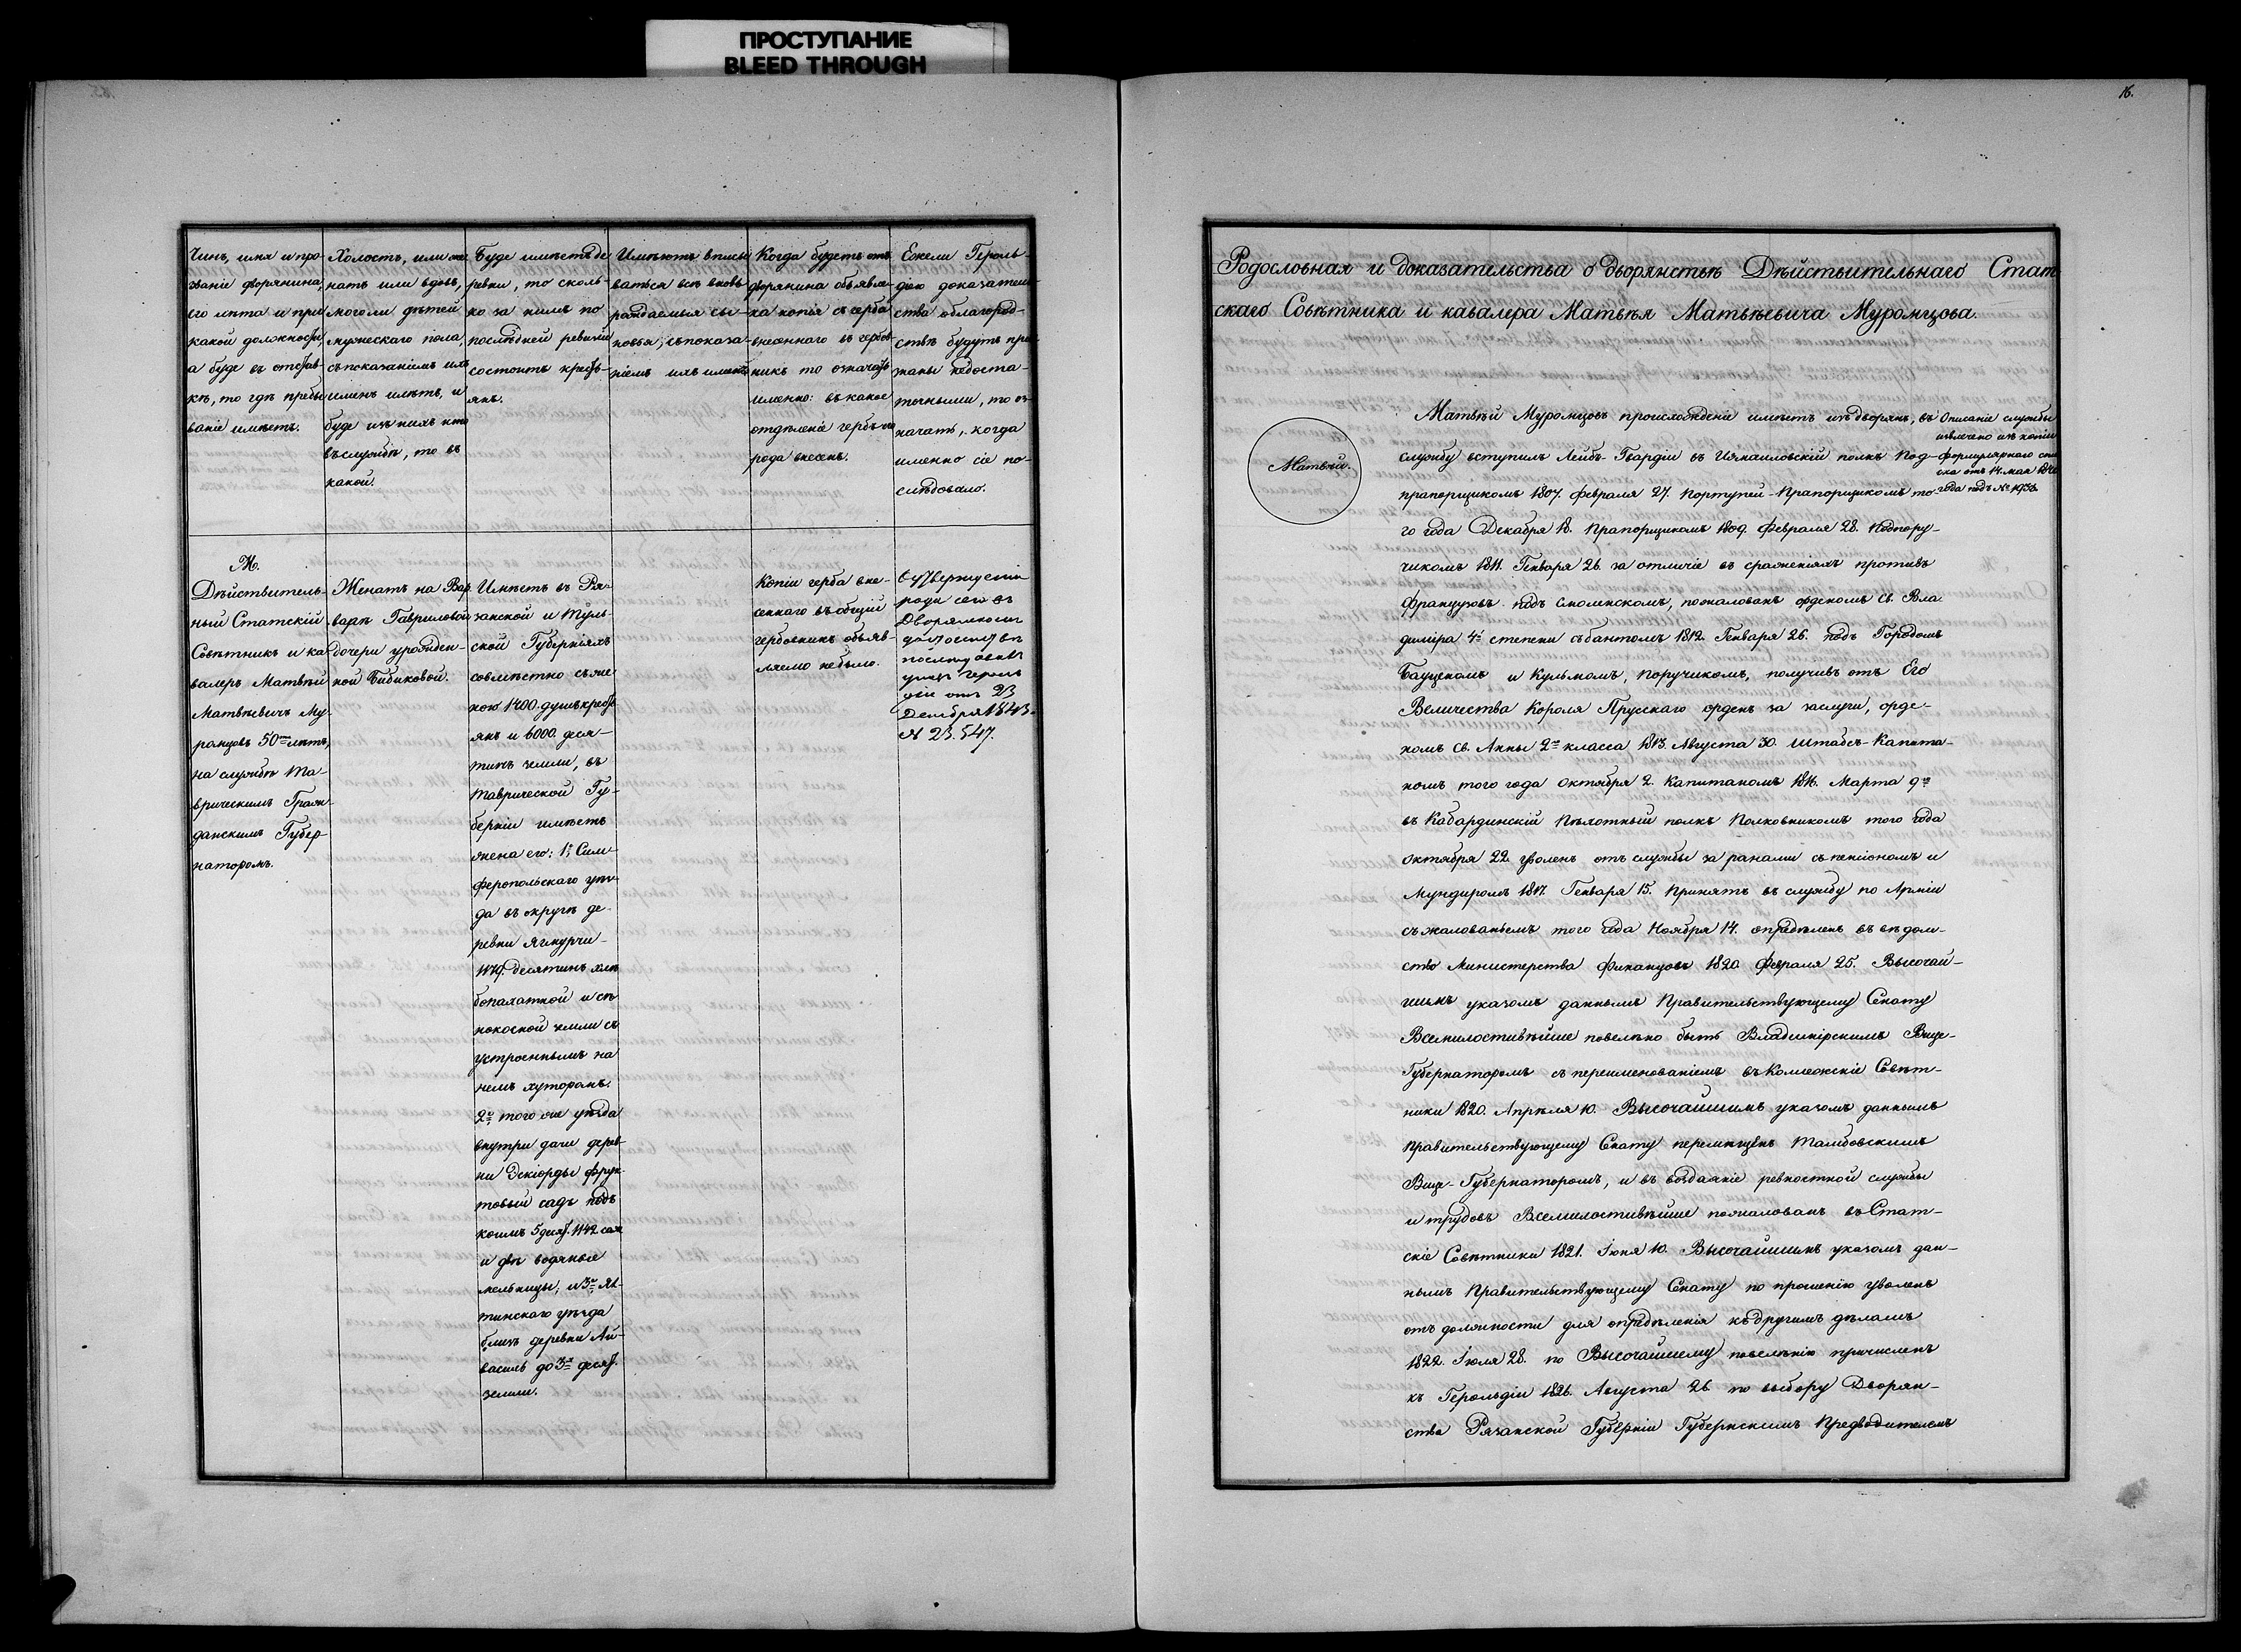 ПРОСТУПАНИЕ
BLEED THROUGH
16.
Чинъ, имя и про-
званіе дворянина,
его лѣта и при
какой должности,
а буде въ отстав-
кѣ, то гдѣ пребы
ваніе имѣетъ.
Холостъ, или же
натъ или вдовъ,
много ли дѣтей
мужескаго пола,
съ показаніемъ ихъ
именъ и лѣтъ, и
буде изъ нихъ кто
въ службѣ, то въ
какой.
Буде имѣетъ де
ревни, то сколь-
ко за нимъ по
послѣдней ревизіи
состоитъ кресть-
янъ.
Имѣютъ вписы
ваться всѣ вновь
раждаемыя сы-
новья, съ показа-
ніемъ ихъ именъ
Когда будетъ отъ
дворянина объявле-
на копія съ герба
внесеннаго въ гербов
никъ то означать
именно: въ какое
отдѣленіе гербъ его
рода внесенъ.
Ежели Героль-
діею доказатель-
ства о благород-
ствѣ будутъ при-
знаны недоста-
точными, то оз-
начать, когда
именно сіе по-
слѣдовало.
М.
Дѣйствитель-
ный Статскій
Совѣтникъ и ка
валеръ Матвѣй
Матвѣевичъ Му-
ромцовъ 50ти лѣтъ,
на службѣ Та-
врическимъ Граж-
данскимъ Губер-
наторомъ.
Женатъ на Вар
варѣ Гавриловой
дочери урожден-
ной Бибиковой.
Имѣетъ въ Ря-
занской и Туль-
ской Губерніяхъ
совмѣстно съ же
ною 1400. душъ кресть
янъ и 6000. деся-
тинъ земли, въ
Таврической Гу-
берніи имѣетъ
жена его: 1е, Сим-
феропольскаго уѣз-
да въ округѣ де-
ревни
1179. десятинъ хлѣ
бопахатной и сѣ
нокосной земли съ
устроеннымъ на
немъ хуторомъ.
2е, того же уѣзда
внутри дачи дерев-
ни Эскіорды фрук
товый садъ подъ
коимъ 5 десят. 1142 саж
и двѣ водяные
мельницы, и 3е, Ял-
тинскаго уѣзда
близъ деревни Ай-
василь до 3хъ десят.
земли.
Копіи герба вне-
сеннаго въ общій
гербовникъ объяв-
ляемо небыло.
Утвержденіе
рода сего въ
Дворянскомъ
достоинствѣ
послѣдовало
указъ Героль
діи отъ 23
Декабря 1843.
№ 23.547.
Родословная и доказательства о дворянствѣ Дѣйствительнаго Стат
скаго Совѣтника и кавалера Матвѣя Матвѣевича Муромцова.
Матвѣй.
Матвѣй Муромцовъ происхожденіе имѣетъ изъ дворянъ, въ
службу вступилъ Лейбъ-Гвардіи въ Измаиловскій полкъ Под-
прапорщикомъ 1807. Февраля 27. Портупей-Прапорщикомъ то-
го года Декабря 18. Прапорщикомъ 1809. Февраля 28. Подпору-
чикомъ 1811. Генваря 26. за отличіе въ сраженіяхъ противъ
Французовъ подъ Смоленскомъ, пожалованъ орденомъ Св. Вла
диміра 4й степени съ бантомъ 1812. Генваря 26. подъ Городомъ
Бауценомъ и Кульмомъ, Поручикомъ, получивъ отъ Его
Величества Короля Прусскаго орденъ за заслуги, орде-
номъ Св. Анны 2го класса 1813. Августа 30. Штабсъ-Капита-
номъ того года Октября 2. Капитаномъ 1816. Марта 9го
въ Кабардинскій Пѣхотный полкъ Полковникомъ того года
Октября 22. уволенъ отъ службы за ранами съ пенсіономъ и
Мундиромъ 1817. Генваря 15. Принятъ въ службу по Арміи
съ жалованьемъ того года Ноября 14. опредѣленъ въ вѣдом-
ство Министерства Финансовъ 1820. Февраля 25. Высочай-
шимъ указомъ даннымъ Правительствующему Сенату
Всемилостивѣйше повелѣно быть Владимірскимъ Вице-
Губернаторомъ съ переименованіемъ въ Коллежскіе Совѣт-
ники 1820. Апрѣля 10. Высочайшимъ указомъ даннымъ
Правительствующему Сенату перемѣщенъ Тамбовскимъ
Вице-Губернаторомъ, и въ воздаяніе ревностной службы
и трудовъ Всемилостивѣйше пожалованъ въ Стат-
скіе Совѣтники 1821. Іюня 10. Высочайшимъ указомъ дан-
нымъ Правительствующему Сенату по прошенію уволенъ
отъ должности для опредѣленія къ другимъ дѣламъ
1822. Іюля 28. по Высочайшему повелѣнію причисленъ
къ Герольдіи 1826. Августа 26. по выбору Дворян-
ства Рязанской Губерніи Губернскимъ Предводителемъ
Описаніе службы
извлечено изъ копіи
формулярнаго спи
ска отъ 14. мая 1840
года подъ № 1938.